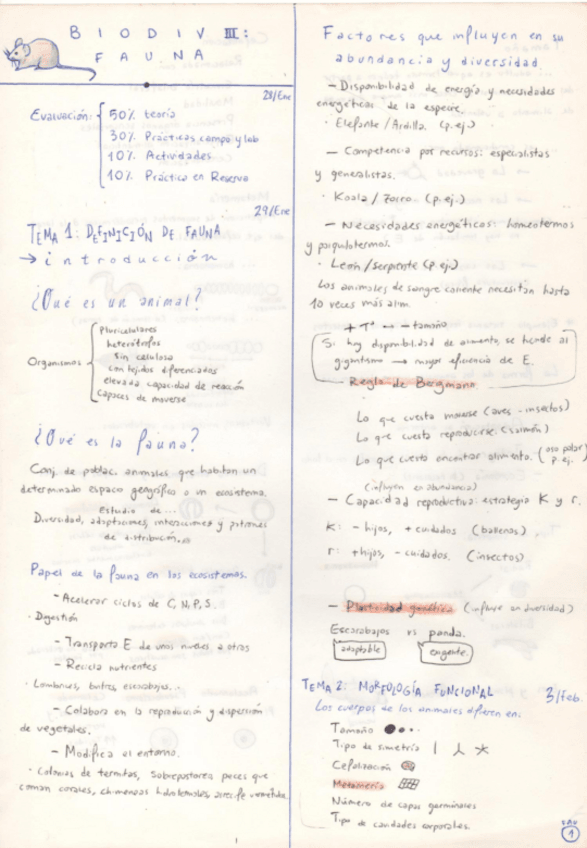 BIODIV III:
FAUNA
28/Ene
Evaluación: 50% teoría
30% Prácticas campo y lab
10% Actividades
10% Práctica en Reserva
29/Ene
TEMA 1: DEFINICIÓN DE FAUNA
→ introducción
¿Qué es un animal?
Organismos
Pluricelulares
heterótrofos
Sin celulosa
con tejidos diferenciados
elevada capacidad de reacción
Capaces de moverse
¿Qué es la fauna?
Conj. de poblac. animales que habitan un
determinado espacio geográfico o un ecosistema.
Estudio de...
Diversidad, adaptaciones, interacciones y patrones
de distribución...
Papel de la fauna en los ecosistemas.
- Acelerar ciclos de C, N, P, S
· Digestión
- Transporta E de unos niveles a otros
- Recicla nutrientes
· Lombrices, buitres, escarabajos...
- Colabora en la reproducción y dispersión
de vegetales.
- Modifica el entorno.
· Colonias de termitas, Sobrepastoreo, peces que
coman corales, chimeneas hidrotermales, arrecife
Factores que influyen en su
abundancia y diversidad
- Disponibilidad de energía y necesidades
energéticas de la especie.
· Elefante / Ardilla. (p.ej.)
- Competencia por recursos: especialistas
y generalistas.
· Koala / Zorro. (p.ej.)
- Necesidades energéticas: homeotermos
y poiquilotermos.
· León / serpiente (p.ej.)
Los animales de sangre caliente necesitan hasta
10 veces más alim.
+ Tª → - tamaño
Si hay disponibilidad de alimento, se tiende al
gigantismo → mayor eficiencia de E.
- Regla de Bergmann
Lo que cuesta moverse (aves - insectos)
Lo que cuesta reproducirse. (salmón)
Lo que cuesta encontrar alimento. (oso polar p. ej.)
(influyen en abundancia)
- Capacidad reproductiva: estrategia K y r.
K: - hijos, + cuidados (ballenas)
r: + hijos, - cuidados. (insectos)
- Plasticidad genética (influye en diversidad)
Escarabajos vs panda.
adaptable
exigente.
TEMA 2: MORFOLOGÍA FUNCIONAL
3/Feb.
Los cuerpos de los animales difieren en:
Tamaño
Tipo de simetría
Cefalización
Metamería
Número de capas germinales
Tipo de cavidades corporales.
1